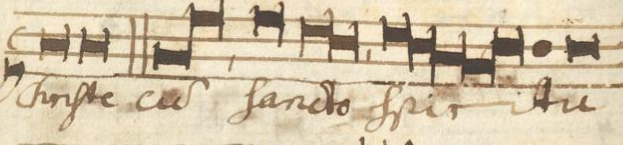 christe cũ sancto spiritu